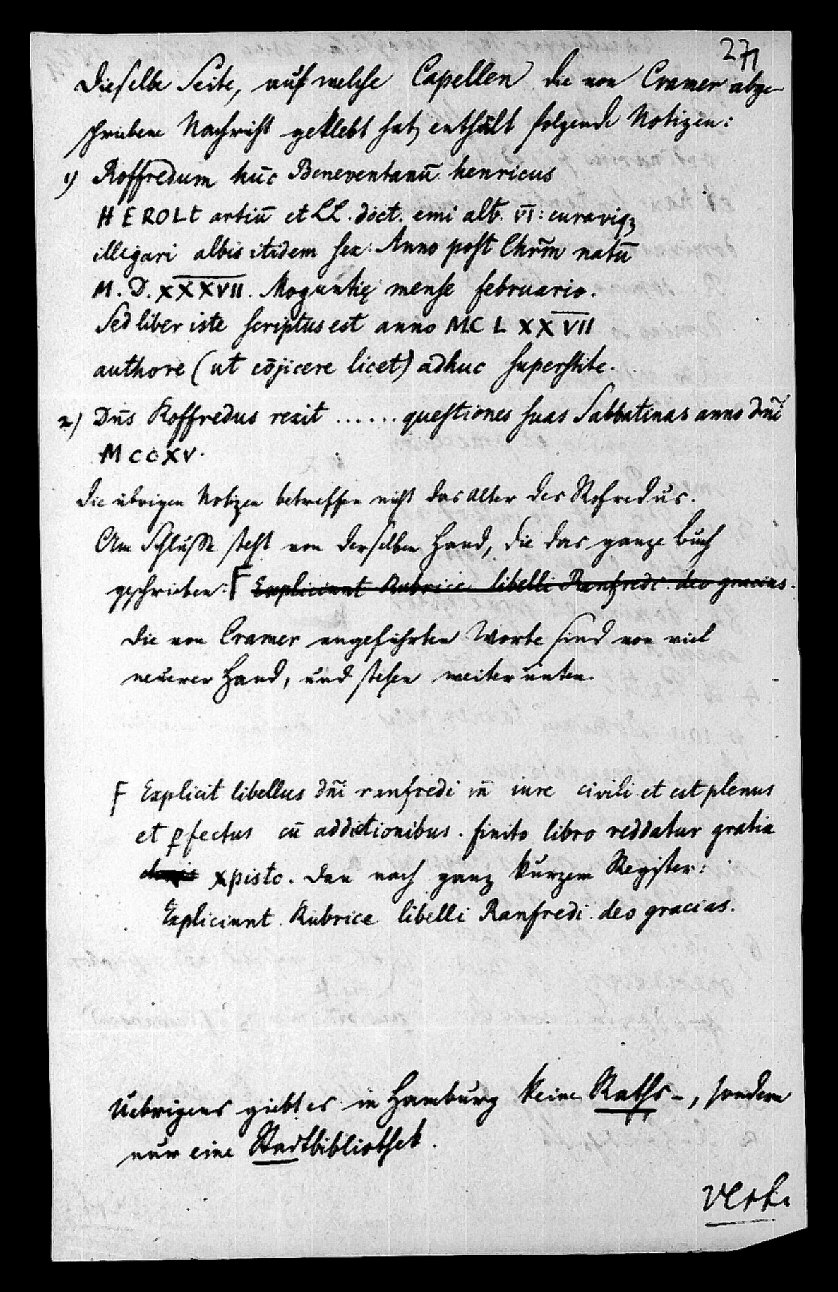 271
Dieselbe Seite, auf welche Capellen die von Cramer abge-
schriebene Nachricht geklebt hat, enthält folgende Notizen:
1) Roffredum hūc Beneventanū henricus
HEROLt artiū et LL. doct. emi alb. VI: curaviq₃
illigari albis itidem sex: Anno post Chrm̄ natū
M.D.XXXVII. Moguntię mense februario.
Sed liber iste scriptus est anno MC L XXVII
authore (ut cōjicere licet) adhuc superstite.
2) Dn̄s Roffredus rexit ...... questiones suas Sabbatinas anno dn̄i
MCCXV.
Die übrigen Notizen betreffen nicht das Alter des Rofredus.
Am Schlusse steht von derselben Hand, die das ganze Buch
geschrieben: F Expliciunt Rubrice libelli Ranfredi. deo gracias.
Die von Cramer angeführten Worte sind von viel
neuerer Hand, und stehen weiter unten.
F Explicit libellus dn̄i ranfredi in̄ iure civili et est plenus
et ꝑfectus cū additionibus. finito libro reddatur gratia
xpisto. Dan nach ganz kurzem Register:
Expliciunt. Rubrice libelli Ranfredi. deo gracias.
Uebrigens giebt es in Hamburg keine Raths-, sondern
nur eine Stadtbibliothek.